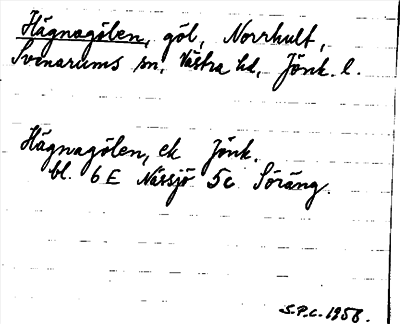 Hägnagölen, göl, Norrhult,
Svenarums sn, Västra hd, Jönk. l.
Hägnagölen, ek Jönk.
bl. 6E Nässjö 5c Söräng.
S.P.C. 1958.